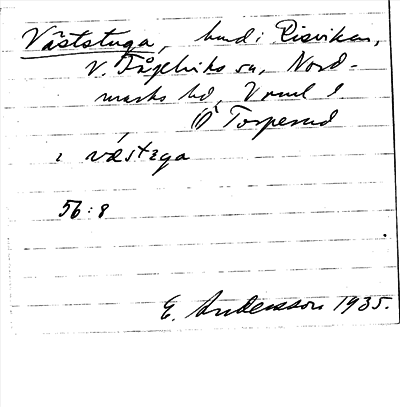 Väststuga, bud i Risviken,
V. Fågelviks sn, Nord-
marks hd, Vrml l
Ö Torperud
i västzga
56:8
E. Andersson 1935.